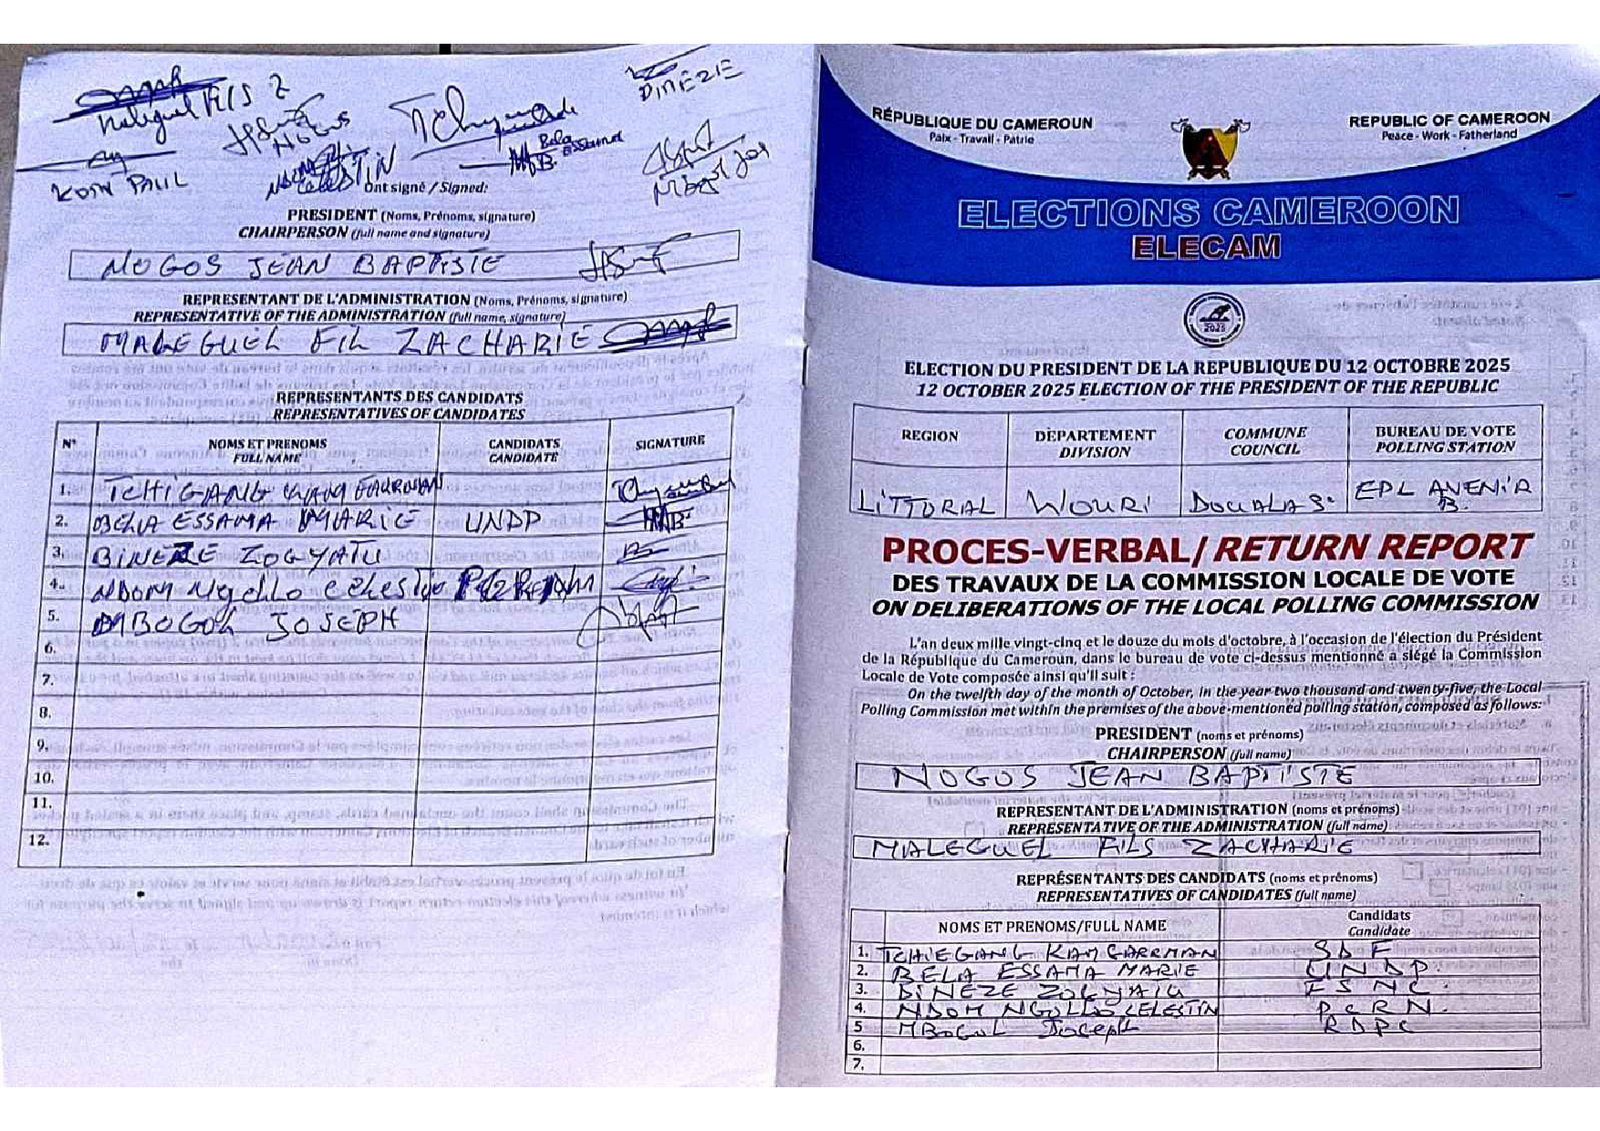 Maleguel Fils Z
NOGOS
Tchi
BINEZE
KOM PAUL
CELESTIN
Bela Essama
B.
Mbogol Jos
Ont signé / Signed:
PRESIDENT (Noms, Prénoms, signature)
CHAIRPERSON (full name and signature)
NOGOS JEAN BAPTISTE
REPRESENTANT DE L'ADMINISTRATION (Noms, Prénoms, signature)
REPRESENTATIVE OF THE ADMINISTRATION (full name, signature)
MALEGUEL FIL ZACHARIE
REPRESENTANTS DES CANDIDATS
REPRESENTATIVES OF CANDIDATES
N° NOMS ET PRENOMS CANDIDATS SIGNATURE
FULL NAME CANDIDATE
1. TCHIGANG KAM GARRMAN
2. BELA ESSAMA MARIE UNDP
3. BINEZE ZOGYATU
4. NDOM Ngollo Celestin
5. MBOGOL JOSEPH
6.
7.
8.
9.
10.
11.
12.
RÉPUBLIQUE DU CAMEROUN REPUBLIC OF CAMEROON
Paix - Travail - Patrie Peace - Work - Fatherland
ELECTIONS CAMEROON
ELECAM
2025
ELECTION DU PRESIDENT DE LA REPUBLIQUE DU 12 OCTOBRE 2025
12 OCTOBER 2025 ELECTION OF THE PRESIDENT OF THE REPUBLIC
REGION DEPARTEMENT COMMUNE BUREAU DE VOTE
DIVISION COUNCIL POLLING STATION
LITTORAL WOURI DOUALA 5e EPL AVENIR
B.
PROCES-VERBAL/ RETURN REPORT
DES TRAVAUX DE LA COMMISSION LOCALE DE VOTE
ON DELIBERATIONS OF THE LOCAL POLLING COMMISSION
L'an deux mille vingt-cinq et le douze du mois d'octobre, à l'occasion de l'élection du Président
de la République du Cameroun, dans le bureau de vote ci-dessus mentionné a siégé la Commission
Locale de Vote composée ainsi qu'il suit :
On the twelfth day of the month of October, in the year two thousand and twenty-five, the Local
Polling Commission met within the premises of the above-mentioned polling station, composed as follows:
PRESIDENT (noms et prénoms)
CHAIRPERSON (full name)
NOGOS JEAN BAPTISTE
REPRESENTANT DE L'ADMINISTRATION (noms et prénoms)
REPRESENTATIVE OF THE ADMINISTRATION (full name)
MALEGUEL FILS ZACHARIE
REPRÉSENTANTS DES CANDIDATS (noms et prénoms)
REPRESENTATIVES OF CANDIDATES (full name)
NOMS ET PRENOMS/FULL NAME Candidats
Candidate
1. TCHIEGANG KAM GARRMAN SDF
2. BELA ESSAMA MARIE UNDP.
3. BINEZE ZOGYATU FSNC.
4. NDOM NGOLLO CELESTIN PCRN.
5 MBOGOL Joseph RDPC
6.
7.